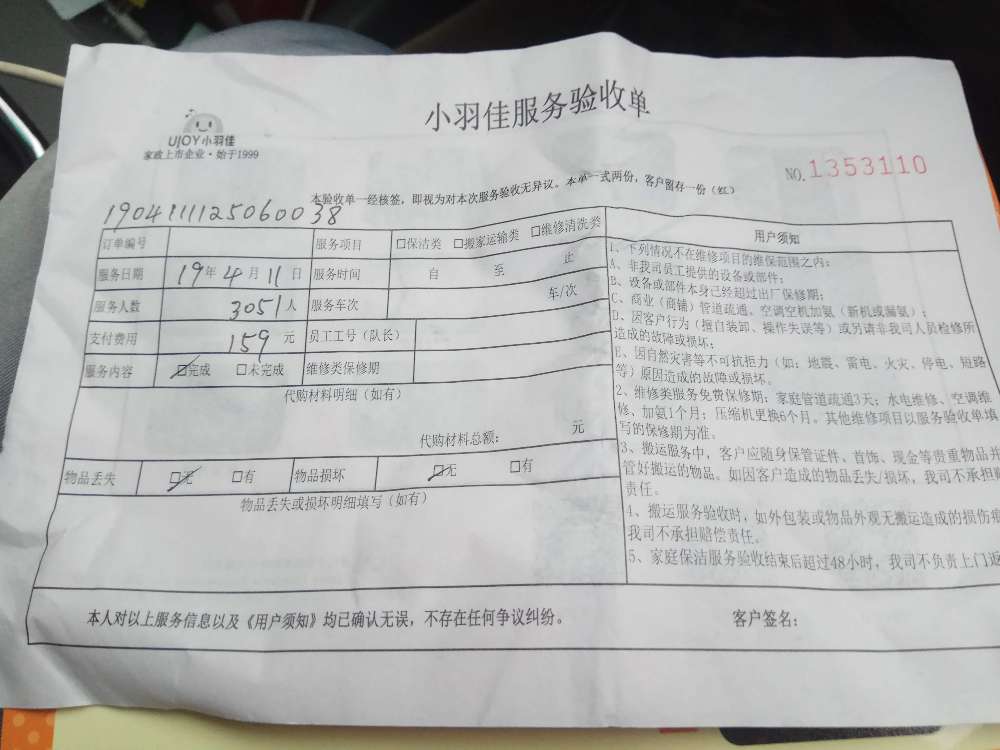 小羽佳服务验收单
UJOY小羽佳
家政上市企业·始于1999
NO.1353110
本验收单一经核签,即视为对本次服务验收无异议。本单一式两份,客户留存一份(红)
19041111125060038
订单编号 服务项目 □保洁类 □搬家运输类 □维修清洗类
服务日期 19年4月11日 服务时间 自 至 止
服务人数 3051人 服务车次 车/次
支付费用 159元 员工工号(队长)
服务内容 □完成 □未完成 维修类保修期
代购材料明细(如有)
代购材料总额: 元
物品丢失 □无 □有 物品损坏 □无 □有
物品丢失或损坏明细填写(如有)
用户须知
1、下列情况不在维修项目的维保范围之内:
A、非我司员工提供的设备或部件;
B、设备或部件本身已经超过出厂保修期;
C、商业(商铺)管道疏通、空调空机加氨(新机或漏氨);
D、因客户行为(擅自装卸、操作失误等)或另请非我司人员检修所
造成的故障或损坏;
E、因自然灾害等不可抗拒力(如:地震、雷电、火灾、停电、短路
等)原因造成的故障或损坏。
2、维修类服务免费保修期:家庭管道疏通3天;水电维修、空调维
修、加氨1个月;压缩机更换6个月。其他维修项目以服务验收单填
写的保修期为准。
3、搬运服务中,客户应随身保管证件、首饰、现金等贵重物品并
管好搬运的物品。如因客户造成的物品丢失/损坏,我司不承担
责任。
4、搬运服务验收时,如外包装或物品外观无搬运造成的损伤痕
我司不承担赔偿责任。
5、家庭保洁服务验收结束后超过48小时,我司不负责上门返
本人对以上服务信息以及《用户须知》均已确认无误,不存在任何争议纠纷。 客户签名: